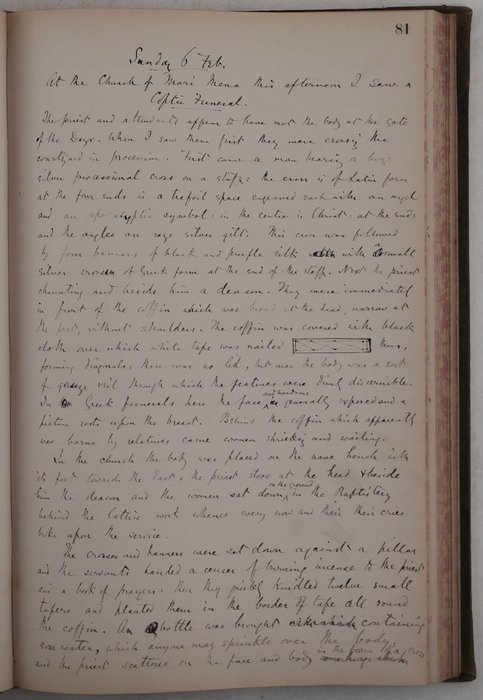 81
Sunday 6 Feb.
At the Church of Mari Mena this afternoon I saw a
Coptic Funeral.
The priest and attendants appear to have met the body at the gate
of the Dayr. When I saw them first they were crossing the
courtyard in procession. First came a man bearing a large
silver processional cross on a staff: the cross is of Latin form
at the four ends is a trefoil space engraved each with an angel
and an apocalyptic symbol: in the centre is Christ: at the ends
and the angles are rays silver gilt. This cross was followed
by four banners of black and purple silk with small
silver crosses of Greek form at the end of the staff. Next the priest
chaunting and beside him a deacon. They were immediately
in front of the coffin which was broad at the head, narrow at
the feet, without shoulders. The coffin was covered with black
cloth over which white tape was nailed thus,
forming diagonals: there was no lid, but over the body was a sort
of gauze veil through which the features were dimly discernible.
In Greek funerals here the face and hands are generally exposed and a
picture rests upon the breast. Behind the coffin which apparently
was borne by relatives came women shrieking and wailing.
In the church the body was placed on the nave bench with
its feet towards the East: the priest stood at the head & beside
him the deacon and the women sat down on the ground in the Baptistery
behind the lattice work whence every now and then their cries
broke upon the service.
The crosses and banners were set down against a pillar
and the servants handed a censer of burning incense to the priest
and a book of prayers: then they quickly kindled twelve small
tapers and planted them in the border of tape all round
the coffin. A bottle was brought containing
rose water, which anyone may sprinkle over the body,
and the priest scattered on the face and body in the form of a cross